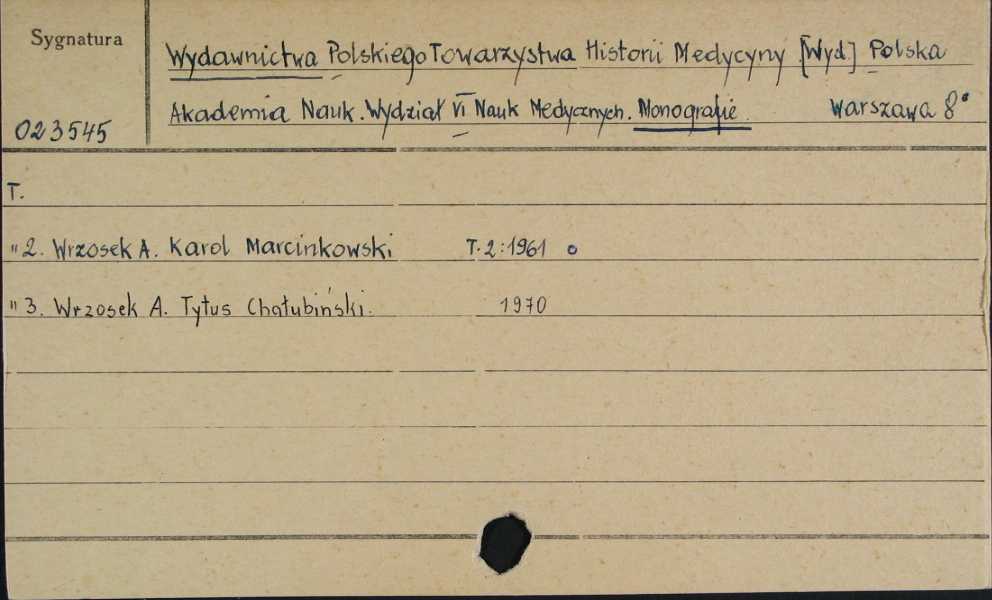 Sygnatura
Wydawnictwa Polskiego Towarzystwa Historii Medycyny [Wyd.] Polska
Akademia Nauk. Wydział VI Nauk Medycznych. Monografie. Warszawa 8°
023545
T.
" 2. Wrzosek A. Karol Marcinkowski T. 2 : 1961 o
" 3. Wrzosek A. Tytus Chałubiński. 1970